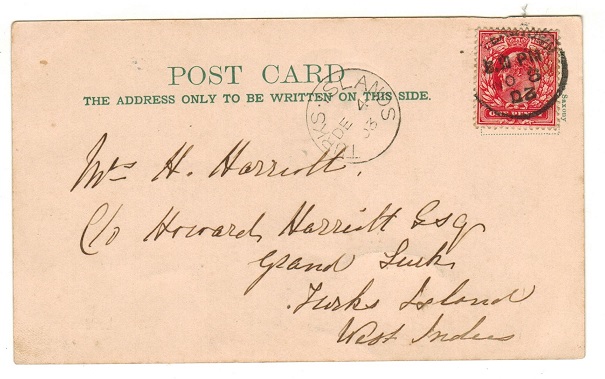 POST CARD
THE ADDRESS ONLY TO BE WRITTEN ON THIS SIDE.
TURKS·ISLANDS
DE 4
03
Saxony
Mrs H. Harriott.
C/o Howard Harriott Esq
Grand Turk
Turks Island
West Indies